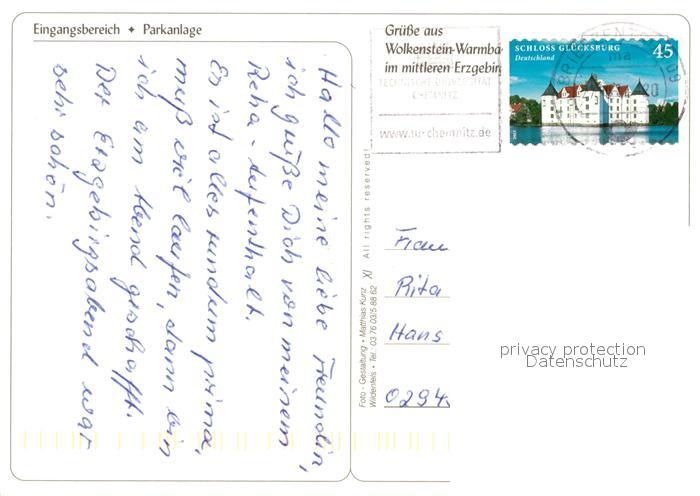 Eingangsbereich ✦ Parkanlage
Hallo meine liebe Freundin,
ich grüße Dich von meinem
Reha-Aufenthalt.
Es ist alles rundum prima,
muß viel laufen, dann bin
ich am Abend geschafft.
Der Erzgebirgsabend war
sehr schön.
Grüße aus
Wolkenstein-Warmba
im mittleren Erzgebirg
TECHNISCHE UNIVERSITÄT
CHEMNITZ
www.tu-chemnitz.de
SCHLOSS GLÜCKSBURG 45
Deutschland
All rights reserved!
XI
Foto - Gestaltung • Matthias Kunz
Wildenfels • Tel.: 03 76 03/5 88 62
Frau
Rita
Hans
0294
privacy protection
Datenschutz